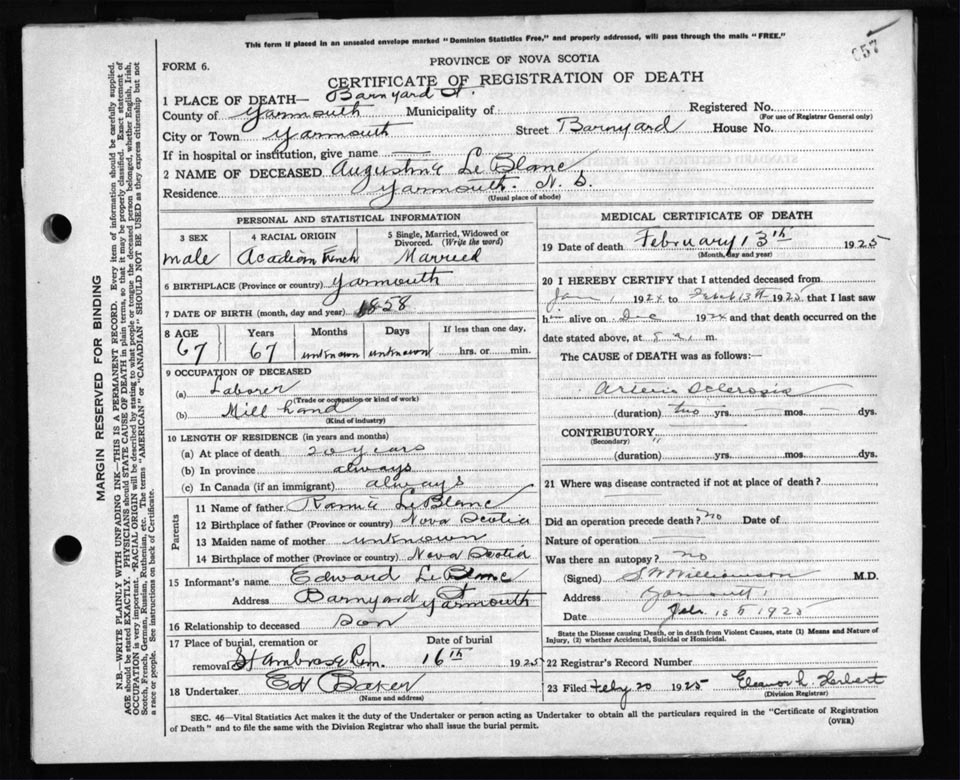 This form if placed in an unsealed envelope marked "Dominion Statistics Free," and properly addressed, will pass through the mails "FREE."
057
FORM 6.
PROVINCE OF NOVA SCOTIA
CERTIFICATE OF REGISTRATION OF DEATH
1 PLACE OF DEATH— Barnyard St.
County of Yarmouth Municipality of Registered No.
(For use of Registrar General only)
City or Town Yarmouth Street Barnyard House No.
If in hospital or institution, give name —
2 NAME OF DECEASED Augustine LeBlanc
Residence Yarmouth. N. S.
(Usual place of abode)
PERSONAL AND STATISTICAL INFORMATION
3 SEX 4 RACIAL ORIGIN 5 Single, Married, Widowed or Divorced. (Write the word)
male Acadian French Married
6 BIRTHPLACE (Province or country) Yarmouth
7 DATE OF BIRTH (month, day and year) 1858
8 AGE Years Months Days If less than one day,
67 67 unknown unknown hrs. or min.
9 OCCUPATION OF DECEASED
(a) Laborer
(Trade or occupation or kind of work)
(b) Mill hand
(Kind of industry)
10 LENGTH OF RESIDENCE (in years and months)
(a) At place of death 20 years
(b) In province always
(c) In Canada (if an immigrant) always
Parents
11 Name of father LeBlanc
12 Birthplace of father (Province or country) Nova Scotia
13 Maiden name of mother unknown
14 Birthplace of mother (Province or country) Nova Scotia
15 Informant's name Edward LeBlanc
Address Barnyard St Yarmouth
16 Relationship to deceased Son
17 Place of burial, cremation or Date of burial
removal St Ambrose Cem. 16th 1925
18 Undertaker Ed Baker
(Name and address)
MEDICAL CERTIFICATE OF DEATH
19 Date of death February 13th 1925
(Month, day and year)
20 I HEREBY CERTIFY that I attended deceased from
Jan 1 1924 to Feb 13th 1925 that I last saw
him alive on Dec 1924 and that death occurred on the
date stated above, at 8 a. m.
The CAUSE of DEATH was as follows:
Arterio Sclerosis
(duration) two yrs. — mos. — dys.
CONTRIBUTORY
(Secondary)
(duration) yrs. mos. dys.
21 Where was disease contracted if not at place of death?
Did an operation precede death? no Date of
Nature of operation —
Was there an autopsy? no
(Signed) Williamson M.D.
Address Yarmouth
Date Feb. 13th 1925
State the Disease causing Death, or in death from Violent Causes, state (1) Means and Nature of
Injury, (2) whether Accidental, Suicidal or Homicidal.
22 Registrar's Record Number
23 Filed Feby 20 1925 Eleanor L. Herbert
(Division Registrar)
SEC. 46—Vital Statistics Act makes it the duty of the Undertaker or person acting as Undertaker to obtain all the particulars required in the "Certificate of Registration
of Death" and to file the same with the Division Registrar who shall issue the burial permit. (OVER)
MARGIN RESERVED FOR BINDING
N.B.—WRITE PLAINLY WITH UNFADING INK—THIS IS A PERMANENT RECORD. Every item of information should be carefully supplied.
AGE should be stated EXACTLY. PHYSICIANS should STATE CAUSE OF DEATH in plain terms, so that it may be properly classified. Exact statement of
OCCUPATION is very important. "RACIAL ORIGIN will be described by stating to what people or tongue the deceased person belonged, whether English, Irish,
Scotch, French, German, Russian, Ruthenian, etc. The terms "AMERICAN" or "CANADIAN" SHOULD NOT BE USED as they express citizenship but not
a race or people. See instructions on back of Certificate.